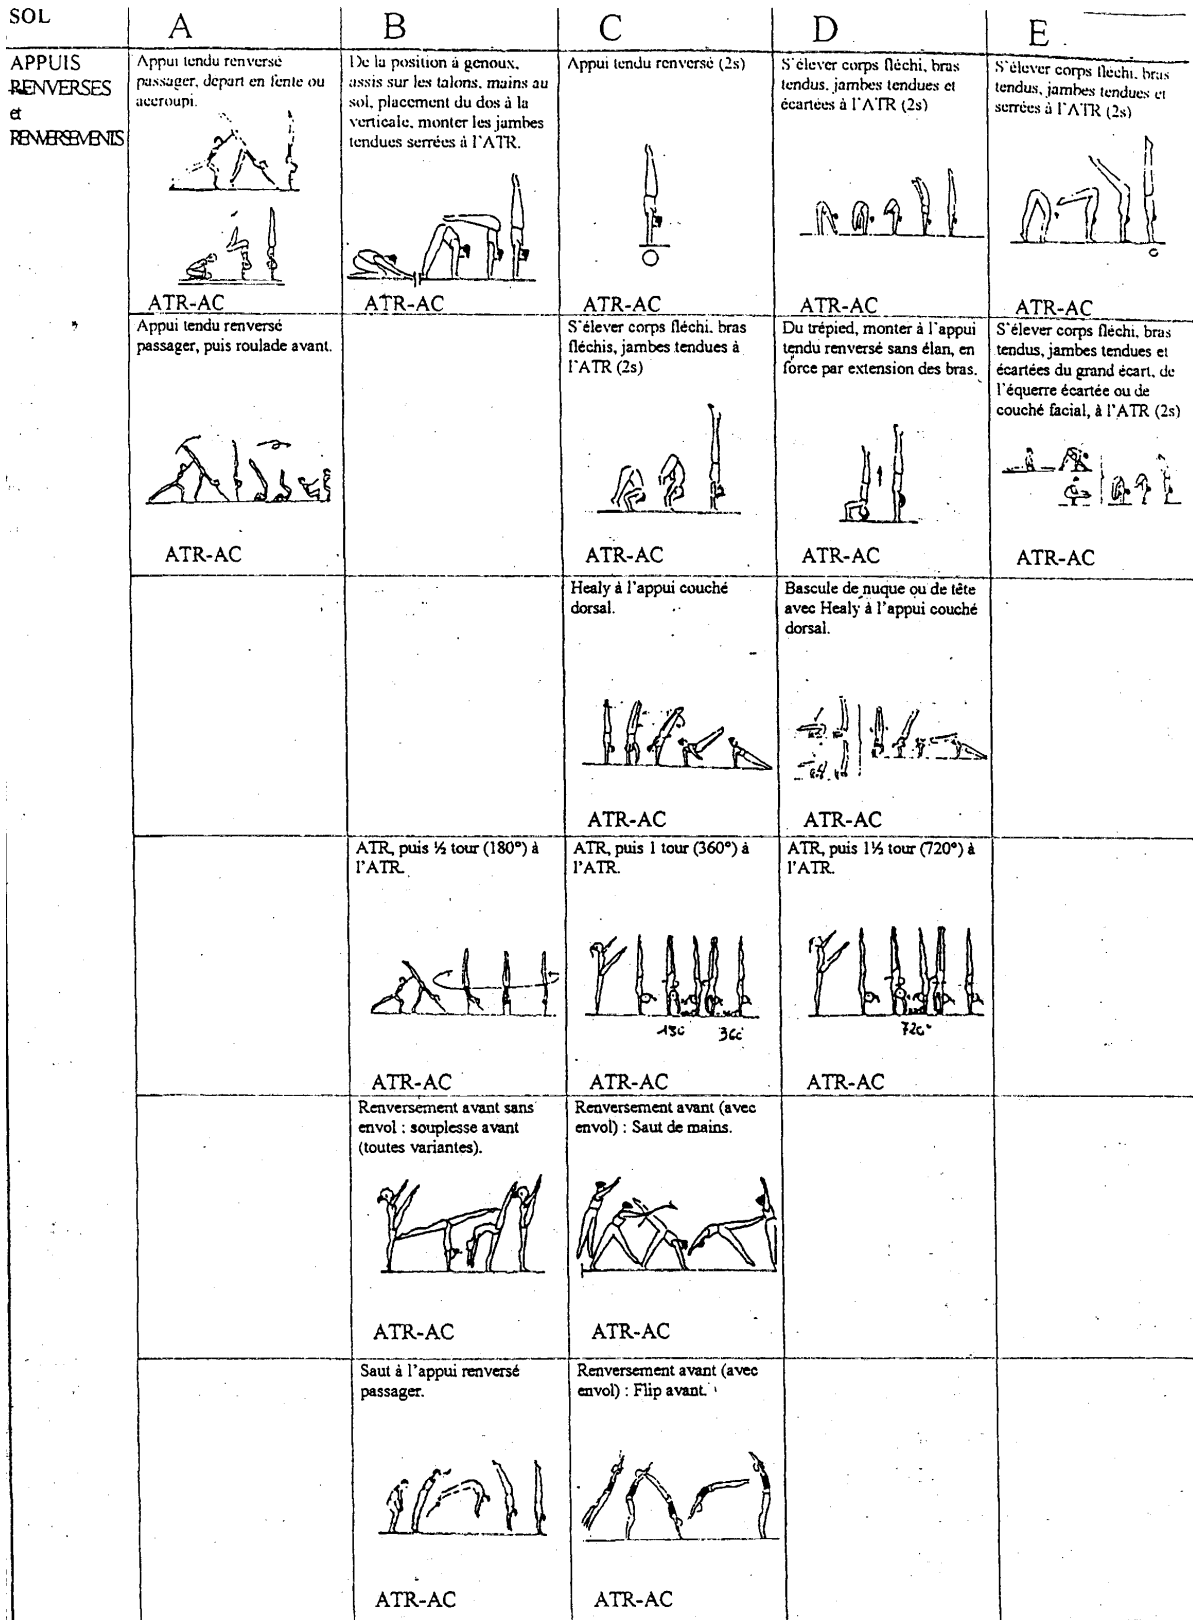 SOL
A
B
C
D
E
APPUIS
RENVERSES
et
RENVERSEMENTS
Appui tendu renversé
passager, départ en fente ou
accroupi.
ATR-AC
De la position à genoux,
assis sur les talons, mains au
sol, placement du dos à la
verticale, monter les jambes
tendues serrées à l'ATR.
ATR-AC
Appui tendu renversé (2s)
ATR-AC
S'élever corps fléchi, bras
tendus, jambes tendues et
écartées à l'ATR (2s)
ATR-AC
S'élever corps fléchi, bras
tendus, jambes tendues et
serrées à l'ATR (2s)
ATR-AC
Appui tendu renversé
passager, puis roulade avant.
ATR-AC
S'élever corps fléchi, bras
fléchis, jambes tendues à
l'ATR (2s)
ATR-AC
Du trépied, monter à l'appui
tendu renversé sans élan, en
force par extension des bras.
ATR-AC
S'élever corps fléchi, bras
tendus, jambes tendues et
écartées du grand écart, de
l'équerre écartée ou de
couché facial, à l'ATR (2s)
ATR-AC
Healy à l'appui couché
dorsal.
ATR-AC
Bascule de nuque ou de tête
avec Healy à l'appui couché
dorsal.
ATR-AC
ATR, puis ½ tour (180°) à
l'ATR.
ATR-AC
ATR, puis 1 tour (360°) à
l'ATR.
180 360
ATR-AC
ATR, puis 1½ tour (720°) à
l'ATR.
720°
ATR-AC
Renversement avant sans
envol : souplesse avant
(toutes variantes).
ATR-AC
Renversement avant (avec
envol) : Saut de mains.
ATR-AC
Saut à l'appui renversé
passager.
ATR-AC
Renversement avant (avec
envol) : Flip avant.
ATR-AC